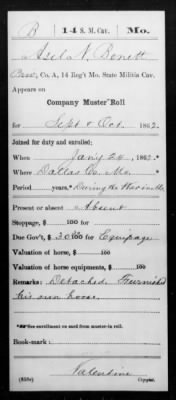 B | 14 S. M. Cav. | Mo.
Asel N. Benett
Co. A, 14 Reg't Mo. State Militia Cav.
Appears on
Company Muster Roll
for Sept & Oct, 1862.
Joined for duty and enrolled:
When Jany 20, 1862.*
Where Dallas Co. Mo.
Period years.* During the War in Mo
Present or absent Absent
Stoppage, $ 100 for
Due Gov't, $ 30 100 for Equipage
Valuation of horse, $ 100
Valuation of horse equipments, $ 100
Remarks: Detached. Furnished
his own horse.
*See enrollment on card from muster-in roll.
Book-mark:
Valentine
(858c) Copyist.